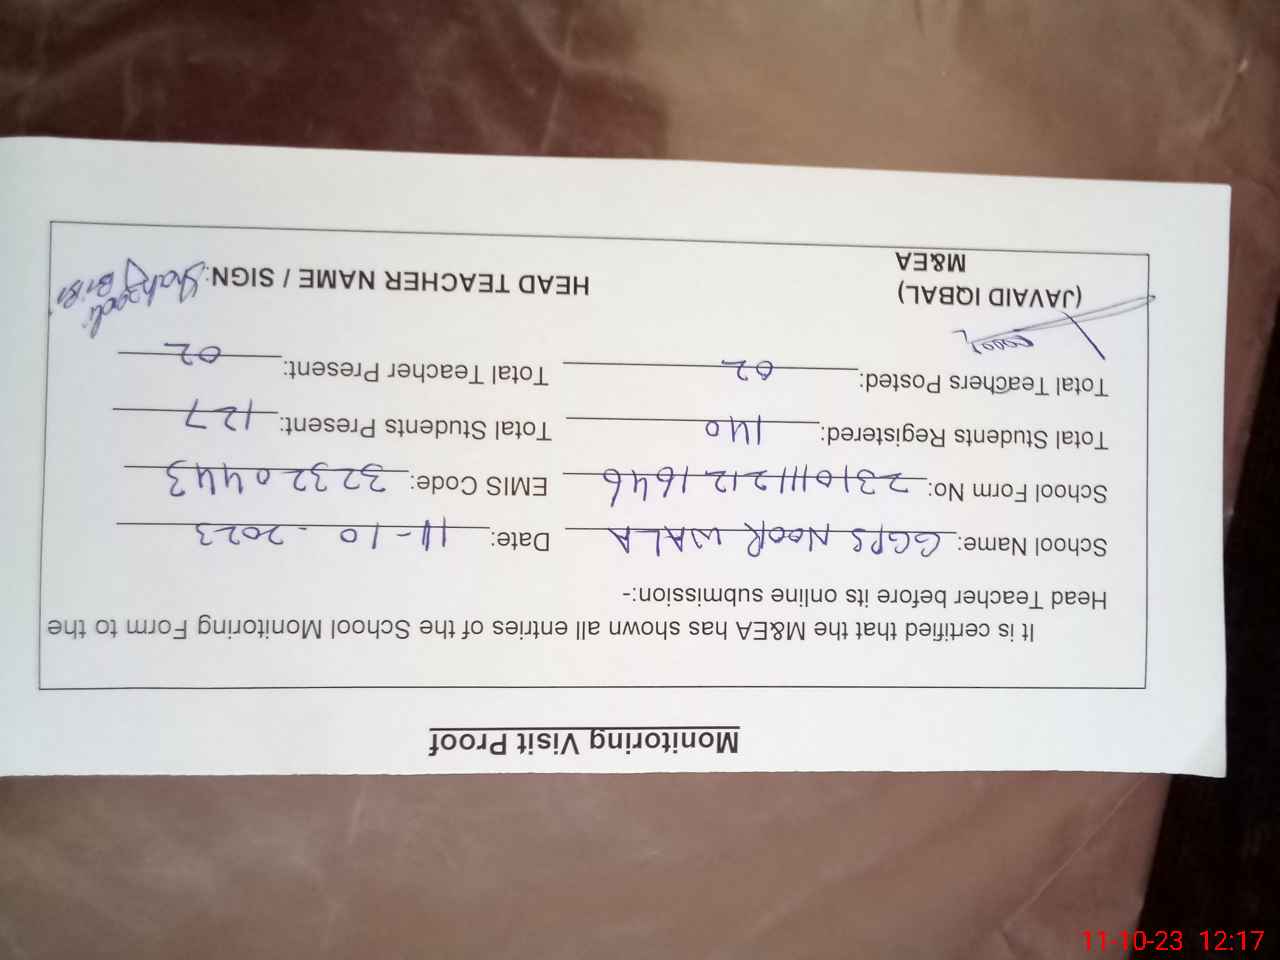 Monitoring Visit Proof
It is certified that the M&EA has shown all entries of the School Monitoring Form to the
Head Teacher before its online submission:-
School Name: GGPS NOOR WALA Date: 11-10-2023
School Form No: 23101112121646 EMIS Code: 32320443
Total Students Registered: 140 Total Students Present: 127
Total Teachers Posted: 02 Total Teacher Present: 02
(JAVAID IQBAL) HEAD TEACHER NAME / SIGN: Shahzadi BiBi
M&EA
11-10-23 12:17